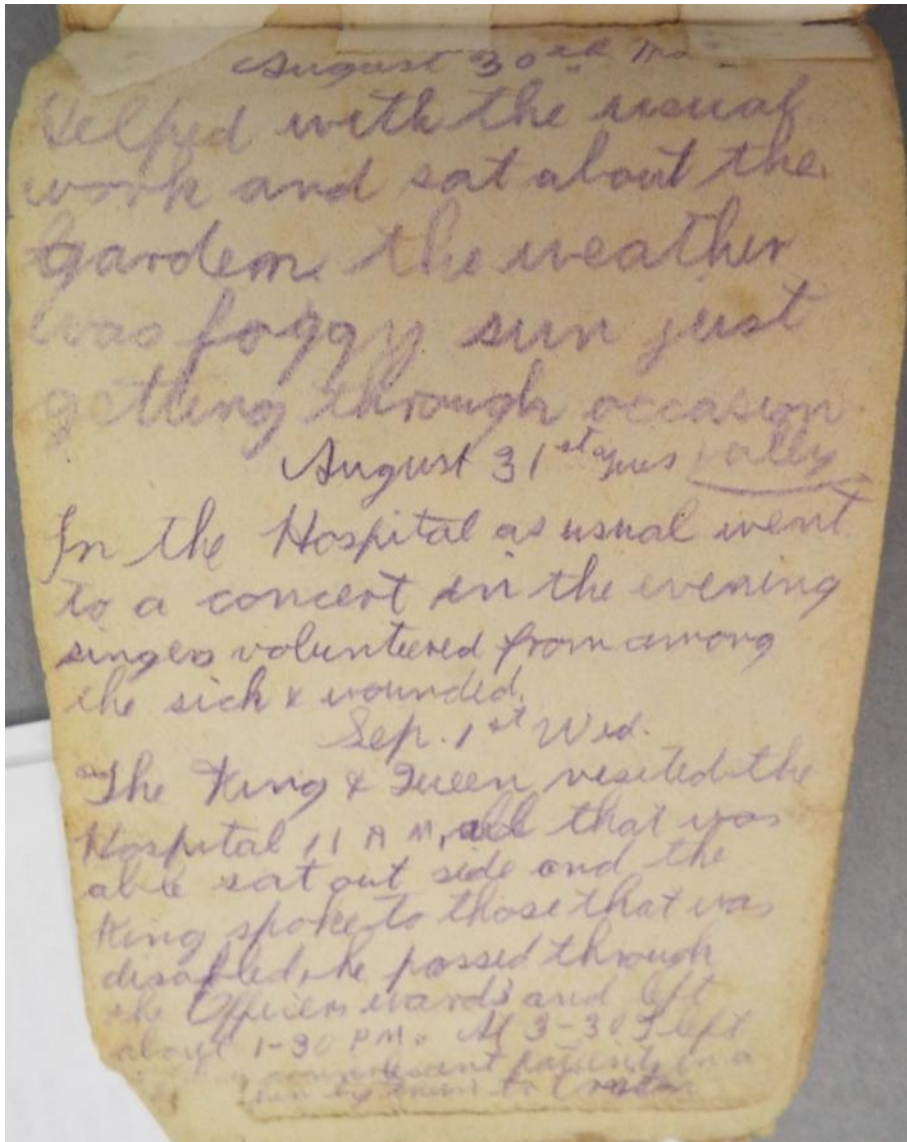 August 30th Mo
Helped with the usual
work and sat about the
Garden. the weather
was foggy sun just
getting through occasion
August 31st Tues ally
In the Hospital as usual went
to a concert in the evening
singers volunteered from among
the sick & wounded.
Sep. 1st Wed.
The King & Queen visited the
Hospital 11 A M, all that was
able sat out side and the
King spoke to those that was
disabled, he passed through
the Officers wards and left
about 1-30 P.M. At 3-30 I left
convalescent patients in a
to